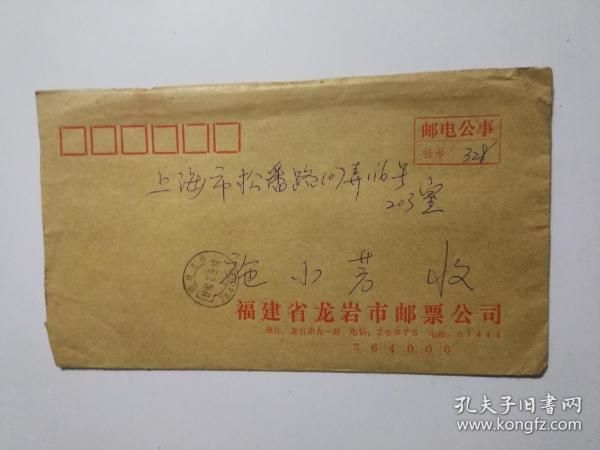 邮电公事
挂号 328
上海市松潘路107弄116号
203室
施小芳 收
福建省龙岩市邮票公司
地址：龙岩市九一路 电话：20975 电挂：01444
364000
孔夫子旧书网
www.kongfz.com